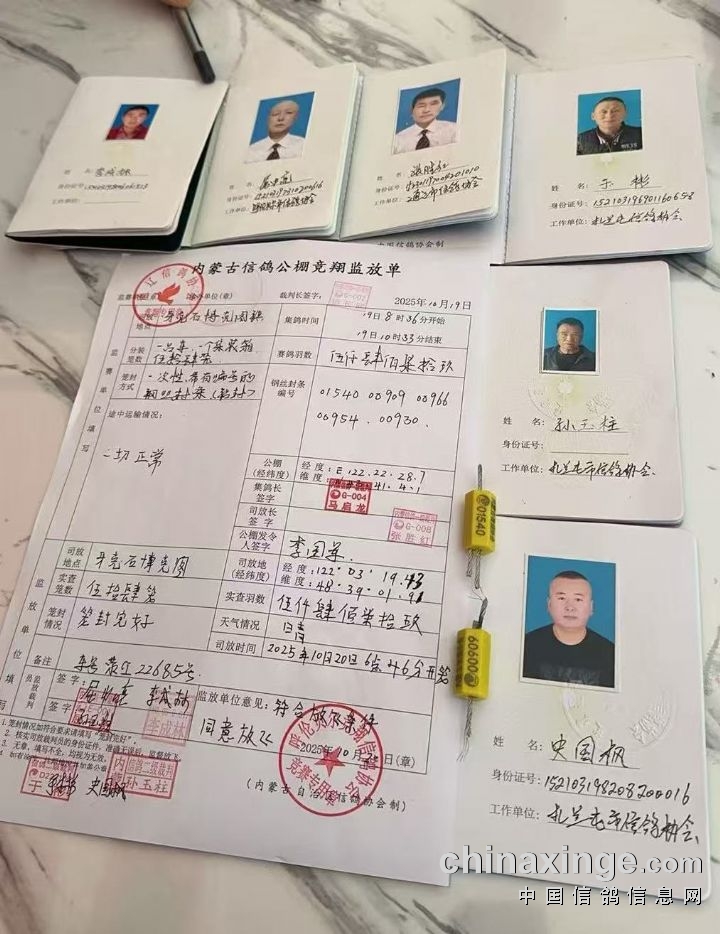 姓 名:
身份证号:
工作单位:
姓 名:
身份证号:
工作单位:
姓 名: 张胜红
身份证号:
工作单位: 通辽市信鸽协会
姓 名: 于彬
身份证号: 152103196901160658
工作单位: 扎兰屯市信鸽协会
中国信鸽协会制
姓 名: 孙玉柱
身份证号:
工作单位: 扎兰屯市信鸽协会
姓 名: 史国枫
身份证号: 152103198208200016
工作单位: 扎兰屯市信鸽协会
内蒙古信鸽公棚竞翔监放单
裁判长签字: 2025年10月19日
监赛单位填写
地点 牙克石博克图镇
集鸽时间 19日8时36分开始
19日10时33分结束
分装笼数 一吕车,一个集装箱 伍拾肆笼
赛鸽羽数 伍仟肆佰柒拾玖
笼封方式 一次性,带有编号的钢丝封条(铅封)
钢丝封条编号 01540 00909 00966
00954 00930
途中运输情况:
一切正常
公棚(经纬度) 经度:E 122.22.28.7
维度: 41.4.1
集鸽长签字
G-004
马启龙
司放长签字
G-008
张胜红
公棚发令人签字 李国军
监放单位填写
司放地点 牙克石博克图
司放地(经纬度) 经度:122°03′19.43
维度:48.39.01.91
实查笼数 伍拾肆笼
实查羽数 伍仟肆佰柒拾玖
笼封情况 笼封完好
天气情况 晴
司放时间 2025年10月20日6点46分开笼
备注 车号蒙E22685号
监放裁判员 签字: 李成林
签字
李成林
监放单位意见: 符合放飞条件
同意放飞
2025年10月 日(章)
1、笼封情况如符合要求请填写“笼封完好”。
2、核实司放裁判员的身份证件,准确无误后,监督放飞。
3、无章、填写不全,均视为无效。
于彬 史国枫
孙玉柱
竞赛专用章
(内蒙古自治区信鸽协会制)
01540
00909
chinaxinge.com
中国信鸽信息网